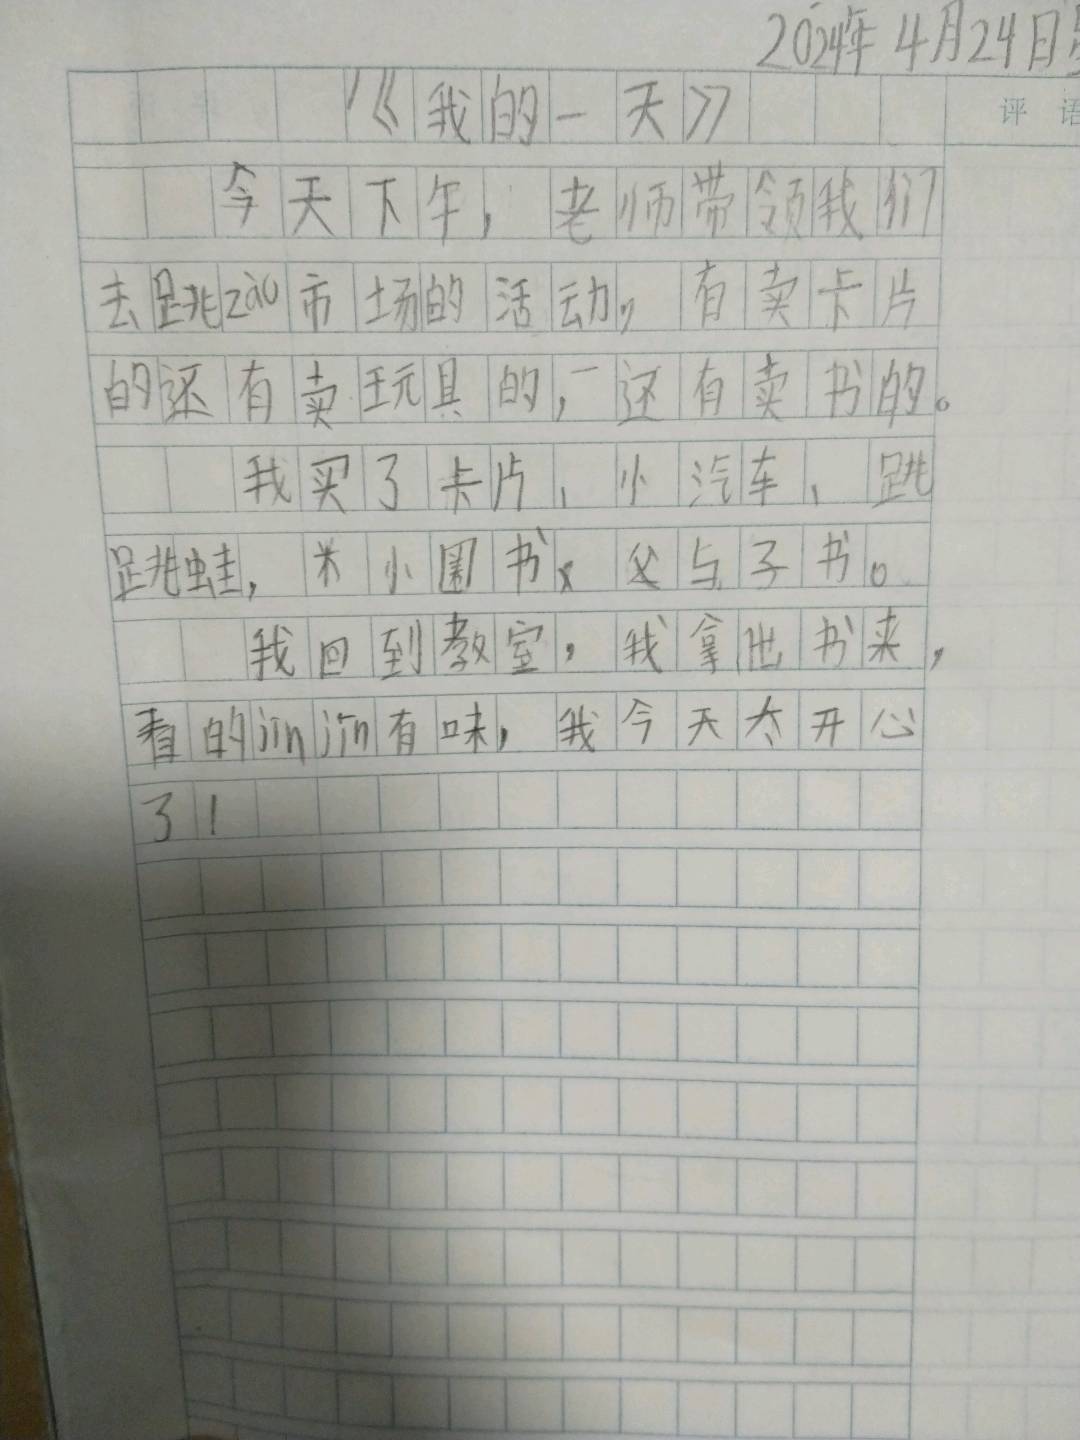 2024年4月24日
《我的一天》
评 语
今天下午，老师带领我们
去跳zào市场的活动，有卖卡片
的还有卖玩具的，还有卖书的。
我买了卡片、小汽车、跳
跳蛙，米小圈书、父与子书。
我回到教室，我拿出书来，
看的jīn jīn有味，我今天太开心
了！